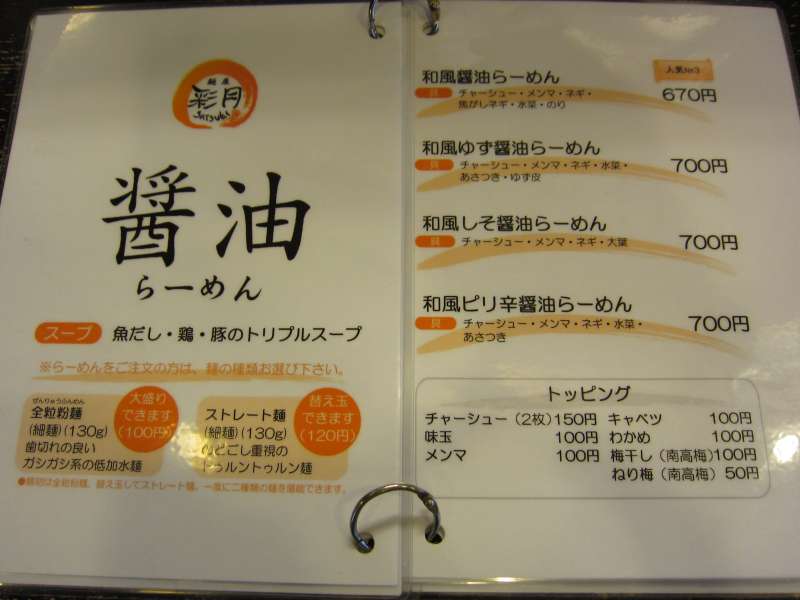 麺屋
彩月
SATSUKI
醤油
らーめん
スープ 魚だし・鶏・豚のトリプルスープ
※らーめんをご注文の方は、麺の種類お選び下さい。
ぜんりゅうふんめん
全粒粉麺
(細麺)(130g)
歯切れの良い
ガシガシ系の低加水麺
大盛り
できます
(100円)
ストレート麺
(細麺)(130g)
のどごし重視の
トゥルントゥルン麺
替え玉
できます
(120円)
●最初は全粒粉麺、替え玉してストレート麺。一度に二種類の麺を堪能できます。
人気No3
和風醤油らーめん 670円
具 チャーシュー・メンマ・ネギ・
焦がしネギ・水菜・のり
和風ゆず醤油らーめん 700円
具 チャーシュー・メンマ・ネギ・水菜・
あさつき・ゆず皮
和風しそ醤油らーめん 700円
具 チャーシュー・メンマ・ネギ・大葉
和風ピリ辛醤油らーめん 700円
具 チャーシュー・メンマ・ネギ・水菜・
あさつき
トッピング
チャーシュー(2枚)150円 キャベツ 100円
味玉 100円 わかめ 100円
メンマ 100円 梅干し(南高梅)100円
ねり梅(南高梅) 50円